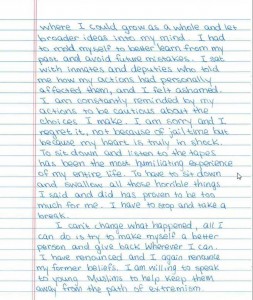 where I could grow as a whole and let
broader ideas into my mind. I had
to mold myself to better learn from my
past and avoid future mistakes. I sat
with inmates and deputies who told
me how my actions had personally
affected them, and I felt ashamed.
I am constantly reminded by my
actions to be cautious about the
choices I make. I am sorry and I
regret it, not because of jail time but
because my heart is truly in shock.
To sit down and listen to the tapes
has been the most humiliating experience
of my entire life. To have to sit down
and swallow all those horrible things
I said and did has proven to be too
much for me. I have to stop and take a
break.
I can't change what happened, all I
can do is try to make myself a better
person and give back wherever I can.
I have renounced and I again renounce
my former beliefs. I am willing to speak
to young Muslims to help keep them
away from the path of extremism.